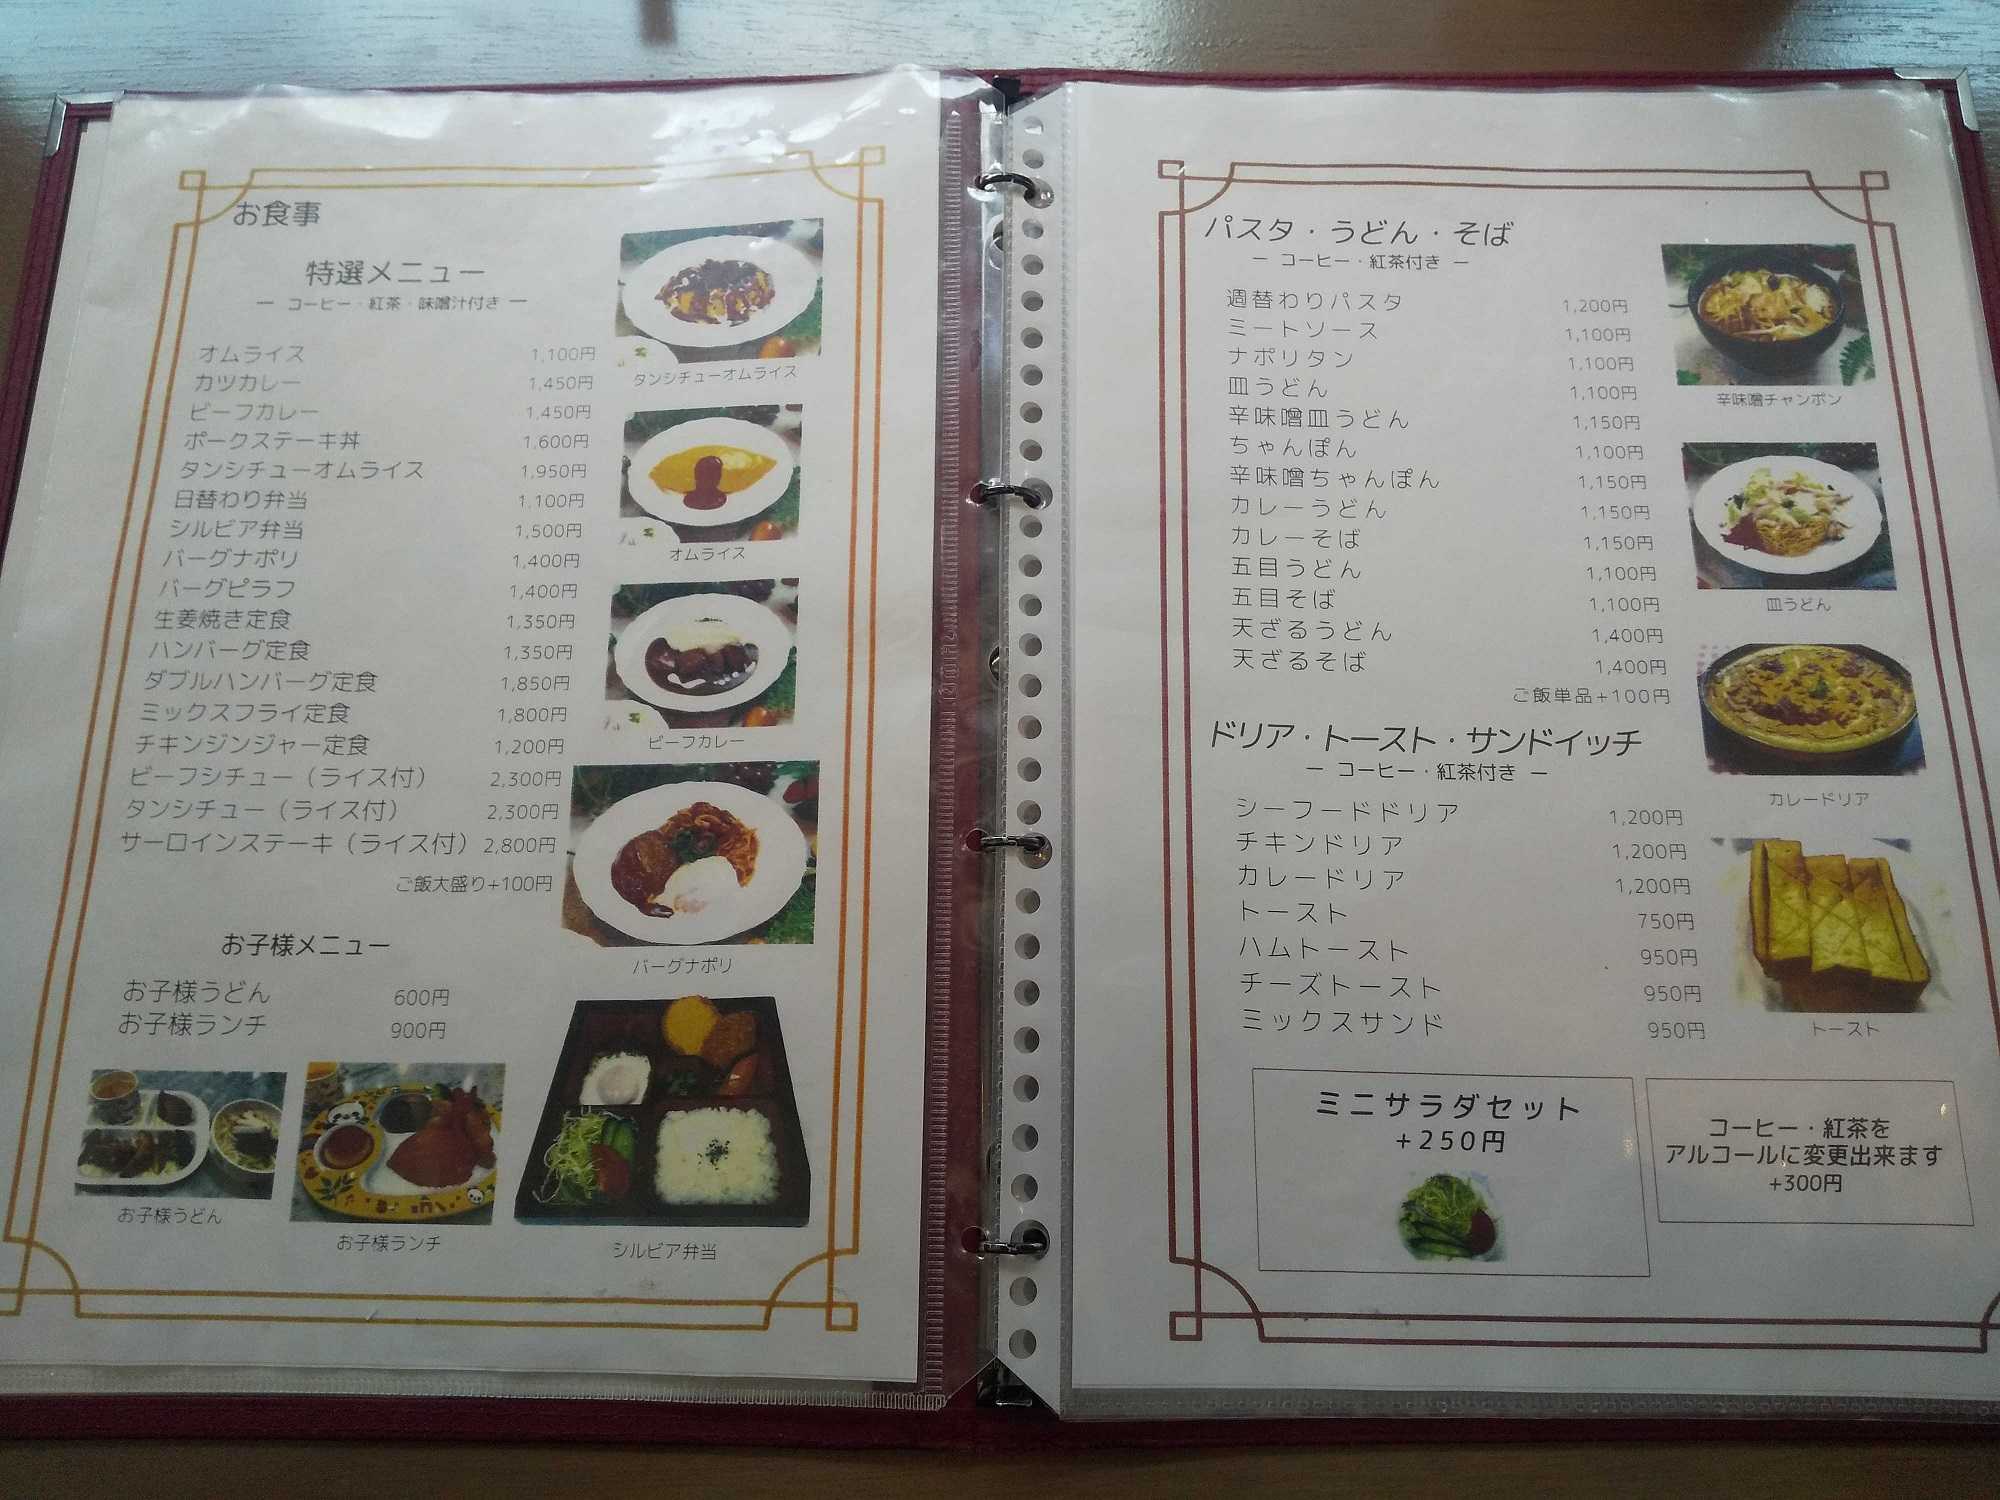 お食事
特選メニュー
ー コーヒー・紅茶・味噌汁付き ー
オムライス 1,100円
カツカレー 1,450円
ビーフカレー 1,450円
ポークステーキ丼 1,600円
タンシチューオムライス 1,950円
日替わり弁当 1,100円
シルビア弁当 1,500円
バーグナポリ 1,400円
バーグピラフ 1,400円
生姜焼き定食 1,350円
ハンバーグ定食 1,350円
ダブルハンバーグ定食 1,850円
ミックスフライ定食 1,800円
チキンジンジャー定食 1,200円
ビーフシチュー（ライス付） 2,300円
タンシチュー（ライス付） 2,300円
サーロインステーキ（ライス付） 2,800円
ご飯大盛り+100円
お子様メニュー
お子様うどん 600円
お子様ランチ 900円
お子様うどん
お子様ランチ
タンシチューオムライス
オムライス
ビーフカレー
バーグナポリ
シルビア弁当
パスタ・うどん・そば
ー コーヒー・紅茶付き ー
週替わりパスタ 1,200円
ミートソース 1,100円
ナポリタン 1,100円
皿うどん 1,100円
辛味噌皿うどん 1,150円
ちゃんぽん 1,100円
辛味噌ちゃんぽん 1,150円
カレーうどん 1,150円
カレーそば 1,150円
五目うどん 1,100円
五目そば 1,100円
天ざるうどん 1,400円
天ざるそば 1,400円
ご飯単品+100円
ドリア・トースト・サンドイッチ
ー コーヒー・紅茶付き ー
シーフードドリア 1,200円
チキンドリア 1,200円
カレードリア 1,200円
トースト 750円
ハムトースト 950円
チーズトースト 950円
ミックスサンド 950円
辛味噌チャンポン
皿うどん
カレードリア
トースト
ミニサラダセット
+250円
コーヒー・紅茶を
アルコールに変更出来ます
+300円